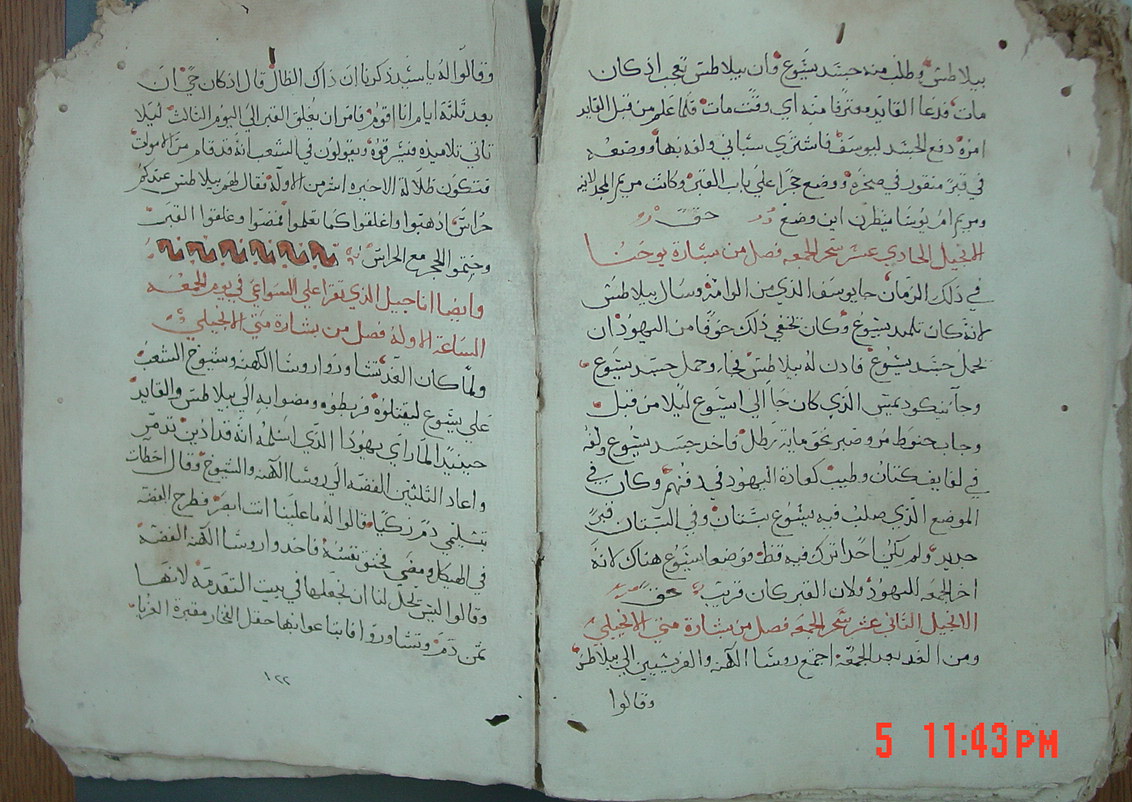 بيلاطس وطلب منه جسد يسوع فان بيلاطس تعجب اذ كان
مات فدعا القايد معترفا منه اي وقت مات فلما علم من قبل القايد
امره دفع الجسد ليوسف فاشتري سباني ولفه بها ووضعه
في قبر منقور في صخره ووضع حجرا علي باب القبر وكانت مريم المجدلانيه
ومريم ام يوسا ينظرن اين وضع حق
الانجيل الحادي عشر سحر الجمعه فصل من بشارة يوحنا
في ذلك الزمان جا يوسف الذي من الرامة وسال بيلاطس
لانه كان تلميد يسوع وكان يخفي ذلك خوفا من اليهود ان
يحمل جسد يسوع فادن له بيلاطس فجاء وحمل جسد يسوع
وجا نيكوديمس الذي كان جا الي يسوع ليلا من قبل
وجاب حنوط مر وصبر نحو ماية رطل فاخد جسد يسوع ولفه
في لفايف كتان وطيب كعادة اليهود في دفنهم وكان في
الموضع الذي صلب فيه يسوع بستان وفي البستان قبر
جديد ولم يكن احدا ترك فيه قط فوضعا يسوع هناك لانه
اخر الجمعه لليهود ولان القبر كان قريب حق
الانجيل الثاني عشر سحر الجمعه فصل من بشارة متي الانجيلي
ومن الغد بعد الجمعة اجتمع روسا الكهنه والفريسيين الي بيلاطس
وقالوا
وقالوا له يا سيد ذكرنا ان ذاك الظال قال اذ كان حي ان
بعد ثلثة ايام انا اقوم فامر ان يغلق القبر الي اليوم الثالث ليلا
تاتي تلاميذه فتسرقوه ويقولون في الشعب انه قد قام من الاموات
فتكون ظلالة الاخيره اشر من الاوله فقال لهم بيلاطس عندكم
حراس اذهبوا واغلقوا كما تعلموا فمضوا وغلقوا القبر
وختموا الحجر مع الحراس
وايضا اناجيل الذي تقرا علي السواعي في يوم الجمعه
الساعة الاوله فصل من بشارة متي الانجيلي
ولما كان الغد تشاوروا روسا الكهنه وشيوخ الشعب
علي يسوع ليقتلوه فربطوه ومضوا به الي بيلاطس والقايد
حينيد لما راي يهودا الذي اسلمه انه قد ادين تدمر
واعاد الثلثين الفضه الي روسا الكهنه والشيوخ وقال اخطات
بتسليمي دم زكيا قالوا له ما علينا انت ابصر فطرح الفضه
في الهيكل ومضي فخنق نفسه فاخدوا روسا الكهنه الفضه
وقالوا ليس يحل لنا ان نجعلها في بيت التقدمه لانها
ثمن دم وتشاوروا فابتاعوا بها حقل الفخار مقبرة الغربا
١٢٢
5 11:43 PM